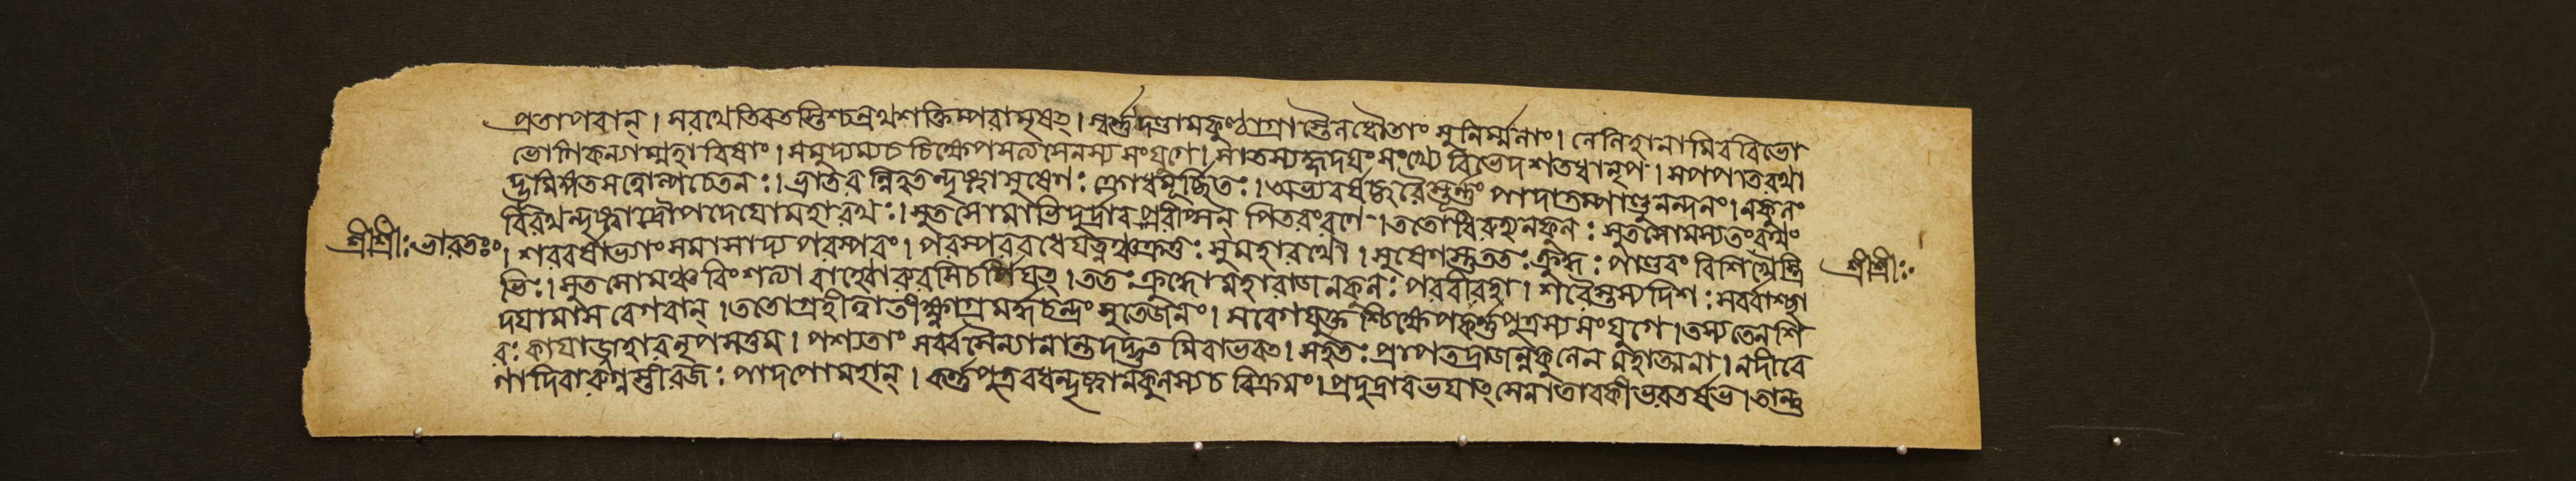 প্রতাপবান্। স রথেতিরতস্তিশ্চন্রথশক্তিম্পরামৃষৎ। স্বর্ণ্ণদণ্ডামকুণ্ঠাগ্রান্তৈলধৌতাং সুনির্ম্মলাং। লেলিহানামিব বিভো
ভোগিকন্যাম্মহাবিষাং। সমুদ্যম্য চ চিক্ষেপ সত্যসেনস্য সংযুগে। সা তস্য হৃদয়ং সংখ্যে বিভেদ শতধা নৃপ। স পপাত রথা
দ্ভূমিঙ্গতসত্বোল্পচেতনঃ। ভ্রাতরন্নিহতন্দৃষ্ট্বা সুষেণঃ ক্রোধমূর্চ্ছিতঃ। অভ্যবর্ষচ্ছরৈস্তূর্ণ্ণং পাদাতম্পাণ্ডুনন্দনং। নকুলং
বিরথন্দৃষ্ট্বা দ্রৌপদেয়ো মহারথঃ। সুতসোমোভিদুদ্রাব পরীপ্সন্ পিতরং রণে। ততোধিরুহ্য নকুলঃ সুতসোমস্য তং রথং
শ্রীশ্রীঃ ভারতঃ
। শরবর্ষাভ্যাং সমাসাদ্য পরস্পরং। পরস্পরবধে যত্নঞ্চক্রতুঃ সুমহারথৌ। সুষেণস্তু ততঃ ক্রুদ্ধঃ পাণ্ডবং বিশিখৈস্ত্রি
শ্রীশ্রীঃ
ভিঃ। সুতসোমঞ্চ বিংশত্যা বাহ্বোরুরসি চার্পয়ৎ। ততঃ ক্রুদ্ধো মহারাজ নকুলঃ পরবীরহা। শরৈস্তস্য দিশঃ সর্ব্বাশ্ছা
দয়ামাস বেগবান্। ততো গ্রহীত্বা তীক্ষ্ণাগ্রমর্দ্ধচন্দ্রং সুতেজনং। স বেগযুক্তশ্চিক্ষেপ কর্ণ্ণপুত্রস্য সংযুগে। তস্য তেন শি
রঃ কায়াজ্জহার নৃপসত্তম। পশ্যতাং সর্ব্বসৈন্যানান্তদদ্ভুতমিবাভবৎ। স হতঃ প্রাপতদ্রাজন্নকুলেন মহাত্মনা। নদীবে
গাদিবারুগ্নস্তীরজঃ পাদপো মহান্। কর্ণ্ণপুত্রবধন্দৃষ্ট্বা নকুলস্য চ বিক্রমং। প্রদুদ্রাব ভয়াৎ সেনা তাবকী ভরতর্ষভ। তান্তু